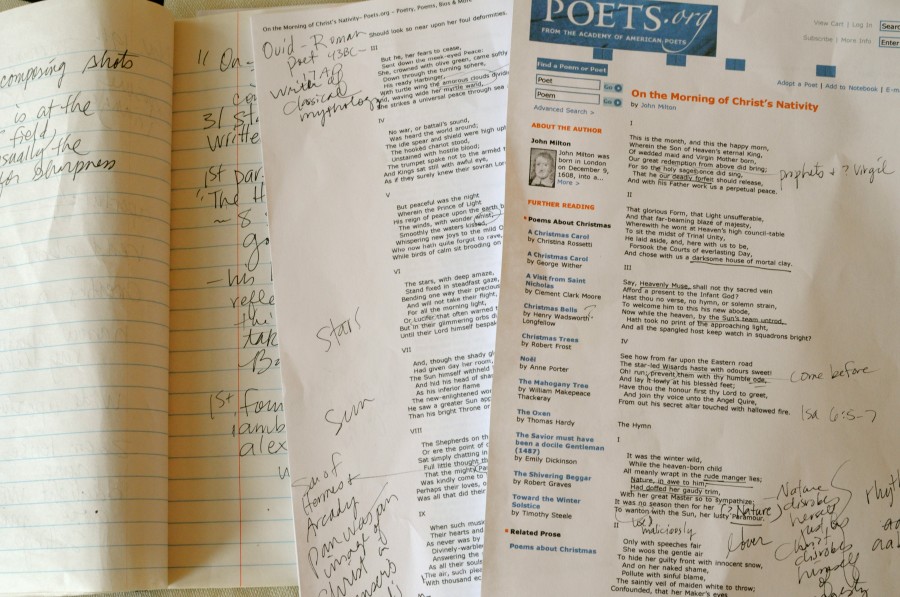 composing shots
is at the
field,
usually the
for sharpness
11 On
31 St
Writte
1st par
"The H
~ 8
go
- his
refle
thi
tak
Ba
1st four
iamb
alex
On the Morning of Christ's Nativity- Poets.org - Poetry, Poems, Bios & More
Should look so near upon her foul deformities.
Ovid - Roman
Poet 43BC-
17 AD
writer of
classical
mythology
III
But he, her fears to cease,
Sent down the meek-eyed Peace:
She, crowned with olive green, came softly
Down through the turning sphere,
His ready Harbinger,
With turtle wing the amorous clouds dividing
And, waving wide her myrtle wand,
She strikes a universal peace through sea
IV
No war, or battail's sound,
Was heard the world around;
The idle spear and shield were high up
The hooked chariot stood,
Unstained with hostile blood;
The trumpet spake not to the armed
And Kings sat still with awful eye,
As if they surely knew their sovran Lor
V
But peaceful was the night
Wherein the Prince of Light
His reign of peace upon the earth b
The winds, with wonder whist,
Smoothly the waters kissed,
Whispering new joys to the mild O
Who now hath quite forgot to rave,
While birds of calm sit brooding on
VI
The stars, with deep amaze,
Stand fixed in steadfast gaze,
Bending one way their precious
And will not take their flight,
For all the morning light,
Or Lucifer that often warned
But in their glimmering orbs d
Until their Lord himself bespak
Stars
VII
And, though the shady g
Had given day her room,
The Sun himself withheld
And hid his head of sha
As his inferior flame
The new-enlightened wor
He saw a greater Sun app
Than his bright Throne or
Sun
VIII
The Shepherds on th
Or ere the point of
Sat simply chatting in
Full little thought th
That the mighty Pan
Was kindly come to
Perhaps their loves, o
Was all that did their
Son of
Hermes +
Arcady
Pan was an
image of
Christ in
IX
When such musi
Their hearts and
As never was by
Divinely-warble
Answering the s
As all their souls
The air, such plea
With thousand ec
POETS.org
FROM THE ACADEMY OF AMERICAN POETS
View Cart | Log In
Subscribe | More Info
Searc
Enter
Find a Poem or Poet
Poet
Go
Poem
Go
Advanced Search >
Adopt a Poet | Add to Notebook | E-m
ABOUT THE AUTHOR
John Milton
John Milton was
born in London
on December 9,
1608, into a...
More >
FURTHER READING
Poems About Christmas
A Christmas Carol
by Christina Rossetti
A Christmas Carol
by George Wither
A Visit from Saint
Nicholas
by Clement Clark Moore
Christmas Bells
by Henry Wadsworth
Longfellow
Christmas Trees
by Robert Frost
Noël
by Anne Porter
The Mahogany Tree
by William Makepeace
Thackeray
The Oxen
by Thomas Hardy
The Savior must have
been a docile Gentleman
(1487)
by Emily Dickinson
The Shivering Beggar
by Robert Graves
Toward the Winter
Solstice
by Timothy Steele
Related Prose
Poems about Christmas
On the Morning of Christ's Nativity
by John Milton
I
This is the month, and this the happy morn,
Wherein the Son of Heaven's eternal King,
Of wedded maid and Virgin Mother born,
Our great redemption from above did bring;
For so the holy sages once did sing,
That he our deadly forfeit should release,
And with his Father work us a perpetual peace.
prophets + ? Virgil
II
That glorious Form, that Light unsufferable,
And that far-beaming blaze of majesty,
Wherewith he wont at Heaven's high council-table
To sit the midst of Trinal Unity,
He laid aside, and, here with us to be,
Forsook the Courts of everlasting Day,
And chose with us a darksome house of mortal clay.
III
Say, Heavenly Muse, shall not thy sacred vein
Afford a present to the Infant God?
Hast thou no verse, no hymn, or solemn strain,
To welcome him to this his new abode,
Now while the heaven, by the Sun's team untrod,
Hath took no print of the approaching light,
And all the spangled host keep watch in squadrons bright?
IV
See how from far upon the Eastern road
The star-led Wisards haste with odours sweet!
Oh! run; prevent them with thy humble ode,
And lay it lowly at his blessed feet;
Have thou the honour first thy Lord to greet,
And join thy voice unto the Angel Quire,
From out his secret altar touched with hallowed fire.
come before
Isa 6:5-7
The Hymn
I
It was the winter wild,
While the heaven-born child
All meanly wrapt in the rude manger lies;
Nature, in awe to him,
Had doffed her gaudy trim,
With her great Master so to sympathize:
It was no season then for her
To wanton with the Sun, her lusty Paramour.
(? Nature)
lover
maliciously
- Nature
disrobes
herself
Christ
disrobes
himself
of
rhyth
aa
II
Only with speeches fair
She woos the gentle air
To hide her guilty front with innocent snow,
And on her naked shame,
Pollute with sinful blame,
The saintly veil of maiden white to throw;
Confounded, that her Maker's eyes